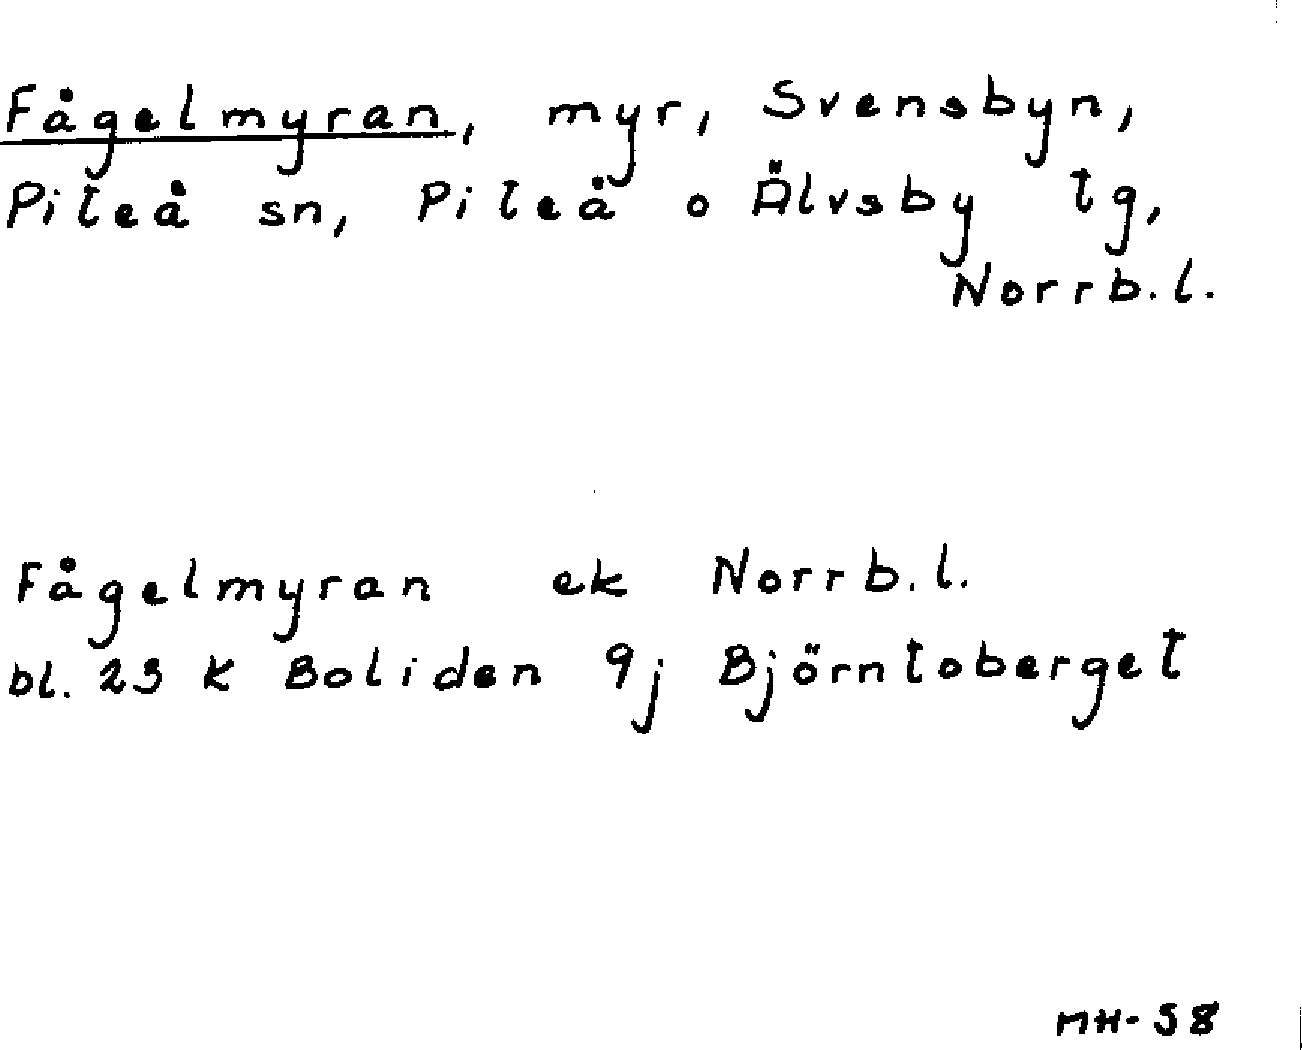 Fågelmyran, myr, Svensbyn,
Piteå sn, Piteå o Älvsby tg,
Norrb.l.
Fågelmyran ek Norrb.l.
bl. 23 K Boliden 9j Björntoberget
MH-58